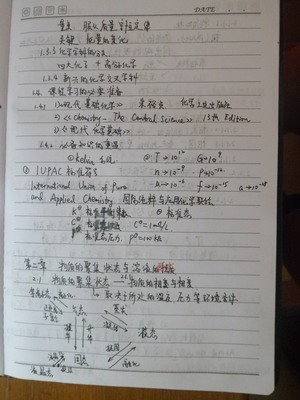 DATE
量变、服从质量守恒定律
关键:能量的变化
1.3.3 化学学科的分支
四大化学 + 高分子化学
1.3.4 新兴的化学交叉学科
1.4 课程学习的必要准备
1.4.1 1)《现代基础化学》 朱裕贞 化学工业出版社
2)《Chemistry - The Central Science》13th Edition
3)《现代化学基础》
1.4.2 必备知识的准备
① Kelvin
T → 10¹² G → 10⁹
② IUPAC 标准
n → 10⁻⁹ p → 10⁻¹²
International Union of Pure
f → 10⁻¹⁵ a → 10⁻¹⁸
and Applied Chemistry 国际纯粹与应用化学联合
K⊖ 标准平衡常数 标准态
C⊖ 标准浓度 C⊖=1mol/L
P⊖ 标准态压力 P⊖=100kPa
第二章 物质的聚集状态与溶液的性质
2.1 物质的聚集状态 物质的相态与相变
取决于所处的温度、压力等环境条件
气态 蒸发
凝华 升华 液态
凝固
固态 熔化